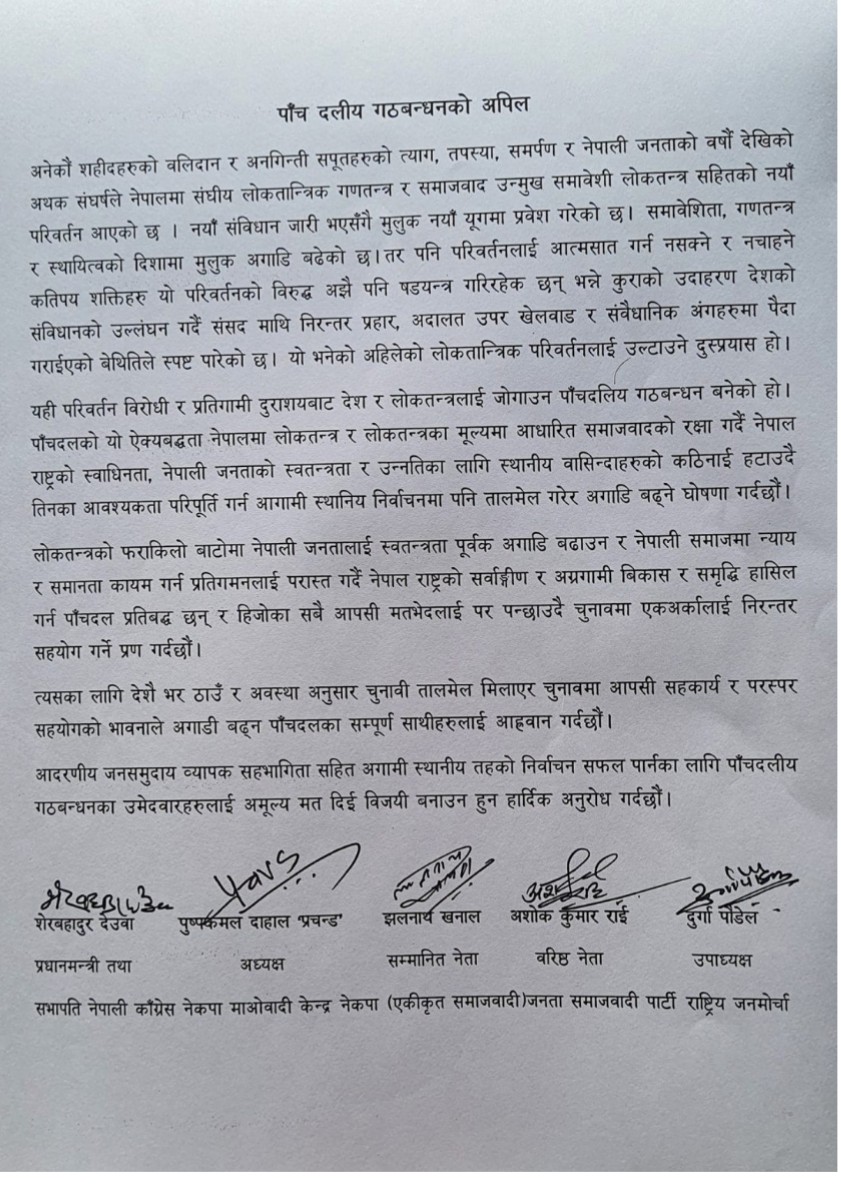 पाँच दलीय गठबन्धनको अपिल
अनेकौ शहीदहरुको बलिदान र अनगिन्ती सपूतहरुको त्याग, तपस्या, समर्पण र नेपाली जनताको वर्षौं देखिको
अथक संघर्षले नेपालमा संघीय लोकतान्त्रिक गणतन्त्र र समाजवाद उन्मुख समावेशी लोकतन्त्र सहितको नयाँ
परिवर्तन आएको छ । नयाँ संविधान जारी भएसँगै मुलुक नयाँ यूगमा प्रवेश गरेको छ। समावेशिता, गणतन्त्र
र स्थायित्वको दिशामा मुलुक अगाडि बढेको छ।तर पनि परिवर्तनलाई आत्मसात गर्न नसक्ने र नचाहने
कतिपय शक्तिहरु यो परिवर्तनको विरुद्ध अझै पनि षडयन्त्र गरिरहेक छन् भन्ने कुराको उदाहरण देशको
संविधानको उल्लंघन गर्दै संसद माथि निरन्तर प्रहार, अदालत उपर खेलवाड र संवैधानिक अंगहरुमा पैदा
गराईएको बेथितिले स्पष्ट पारेको छ। यो भनेको अहिलेको लोकतान्त्रिक परिवर्तनलाई उल्टाउने दुस्प्रयास हो।
यही परिवर्तन विरोधी र प्रतिगामी दुराशयबाट देश र लोकतन्त्रलाई जोगाउन पाँचदलिय गठबन्धन बनेको हो।
पाँचदलको यो ऐक्यबद्धता नेपालमा लोकतन्त्र र लोकतन्त्रका मूल्यमा आधारित समाजवादको रक्षा गर्दै नेपाल
राष्ट्रको स्वाधिनता, नेपाली जनताको स्वतन्त्रता र उन्नतिका लागि स्थानीय वासिन्दाहरुको कठिनाई हटाउदै
तिनका आवश्यकता परिपूर्ति गर्न आगामी स्थानिय निर्वाचनमा पनि तालमेल गरेर अगाडि बढ्ने घोषणा गर्दछौं।
लोकतन्त्रको फराकिलो बाटोमा नेपाली जनतालाई स्वतन्त्रता पूर्वक अगाडि बढाउन र नेपाली समाजमा न्याय
र समानता कायम गर्न प्रतिगमनलाई परास्त गर्दै नेपाल राष्ट्रको सर्वाङ्गीण र अग्रगामी बिकास र समृद्धि हासिल
गर्न पाँचदल प्रतिबद्ध छन् र हिजोका सबै आपसी मतभेदलाई पर पन्छाउदै चुनावमा एकअर्कालाई निरन्तर
सहयोग गर्ने प्रण गर्दछौं।
त्यसका लागि देशै भर ठाउँ र अवस्था अनुसार चुनावी तालमेल मिलाएर चुनावमा आपसी सहकार्य र परस्पर
सहयोगको भावनाले अगाडी बढ्न पाँचदलका सम्पूर्ण साथीहरुलाई आह्रवान गर्दछौं।
आदरणीय जनसमुदाय व्यापक सहभागिता सहित अगामी स्थानीय तहको निर्वाचन सफल पार्नका लागि पाँचदलीय
गठबन्धनका उमेदवारहरुलाई अमूल्य मत दिई विजयी बनाउन हुन हार्दिक अनुरोध गर्दछौं।
शेरबहादुर देउवा पुष्पकमल दाहाल ‘प्रचन्ड’ झलनाथ खनाल अशोक कुमार राई दुर्गा पौडेल
प्रधानमन्त्री तथा अध्यक्ष सम्मानित नेता वरिष्ठ नेता उपाध्यक्ष
सभापति नेपाली काँग्रेस नेकपा माओवादी केन्द्र नेकपा (एकीकृत समाजवादी)जनता समाजवादी पार्टी राष्ट्रिय जनमोर्चा